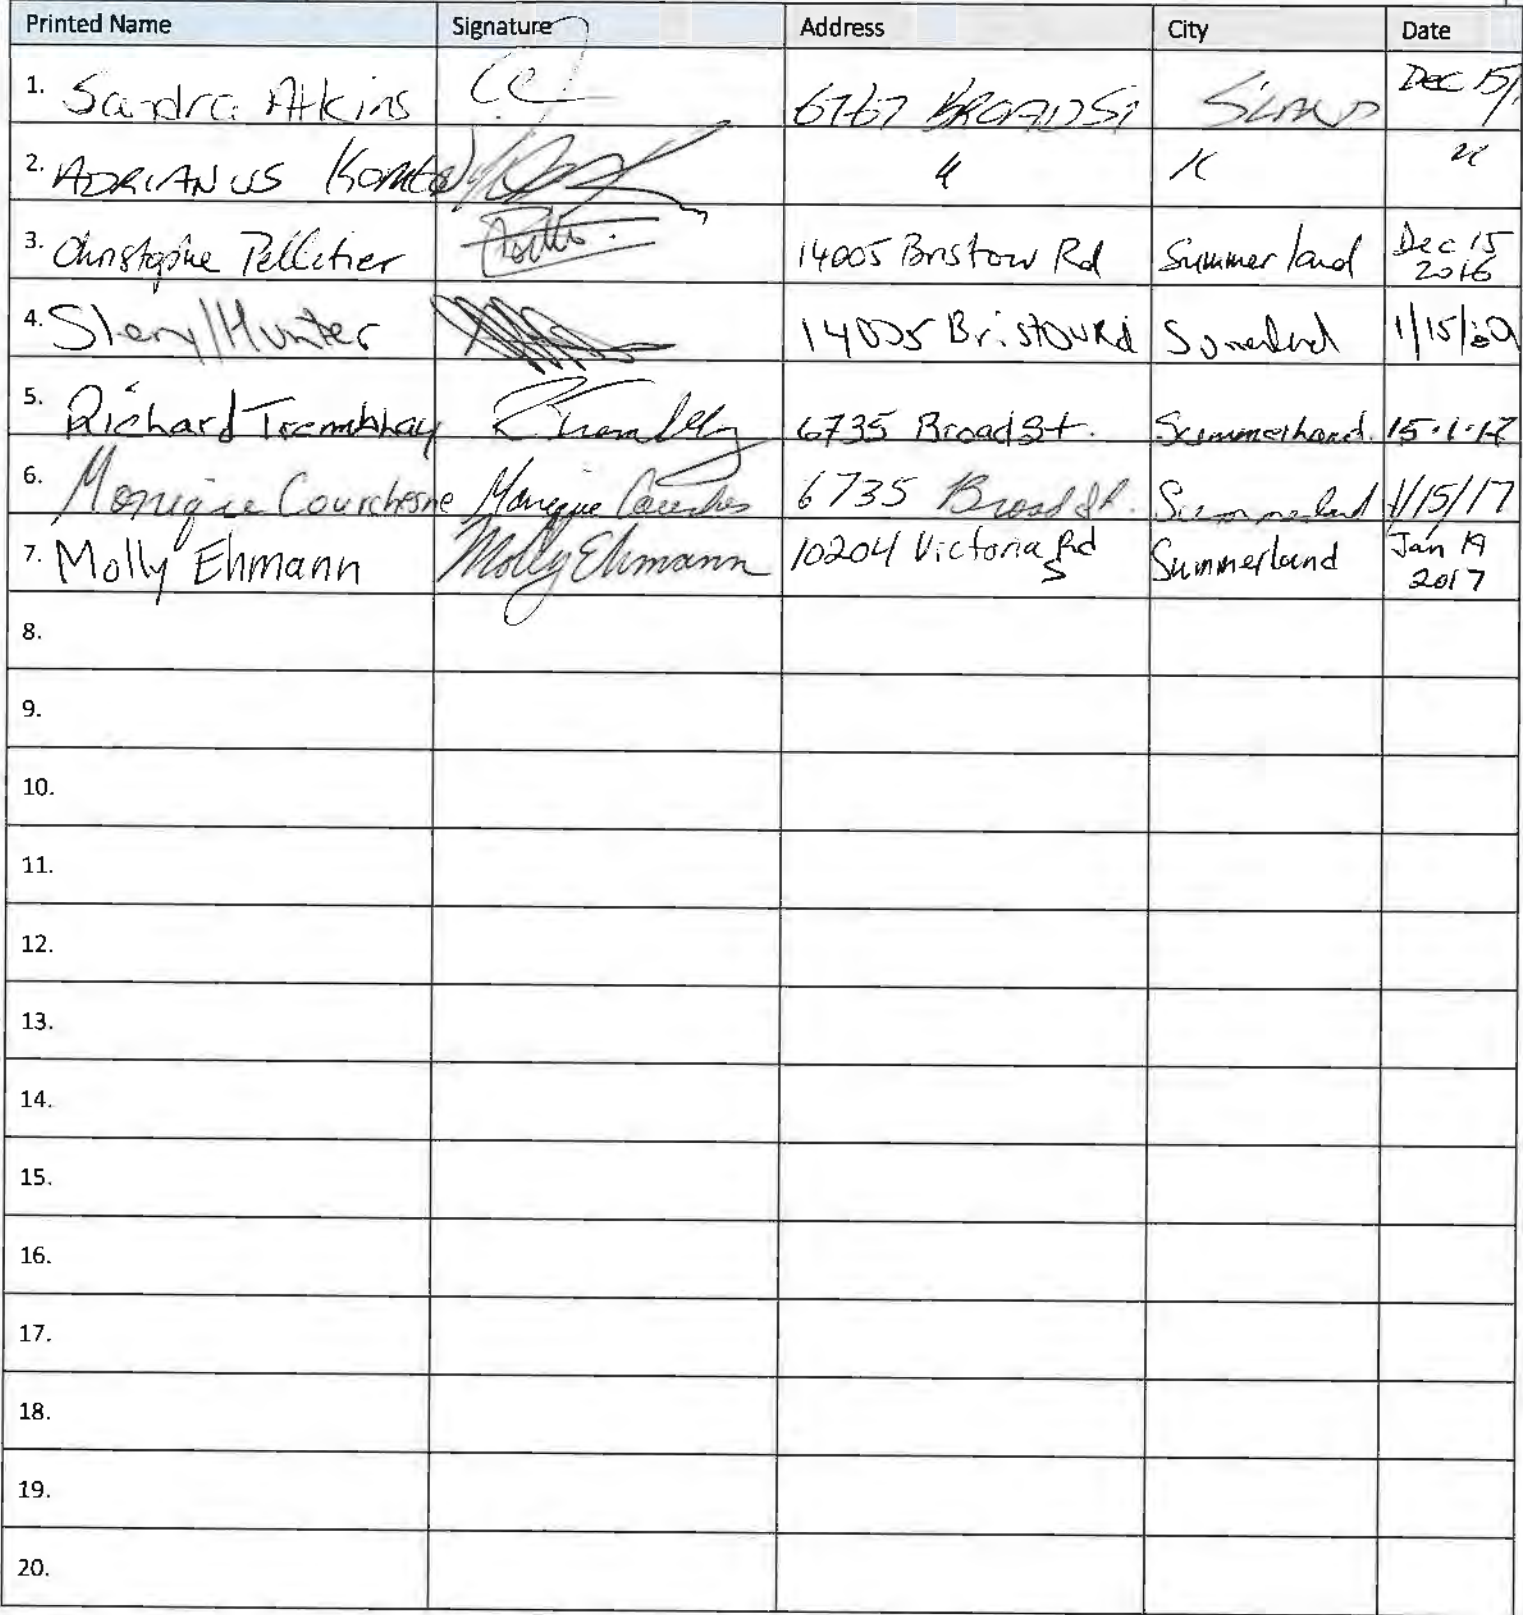 Printed Name Signature Address City Date
1. Sandra Atkins 6767 BROAD St S'LAND Dec 15/
2. ADRIANUS " " "
3. Christophe Pelletier 14005 Bristow Rd Summerland Dec 15 2016
4. Sheryl Hunter 14005 Bristow Rd 1/15/
5. Richard Tremblay RTremblay 6735 Broad St. Summerland. 15.1.17
6. Monique Courchesne Monique 6735 Broad St. Summerland 1/15/17
7. Molly Ehmann Molly Ehmann 10204 Victoria Rd S Summerland Jan 19 2017
8.
9.
10.
11.
12.
13.
14.
15.
16.
17.
18.
19.
20.